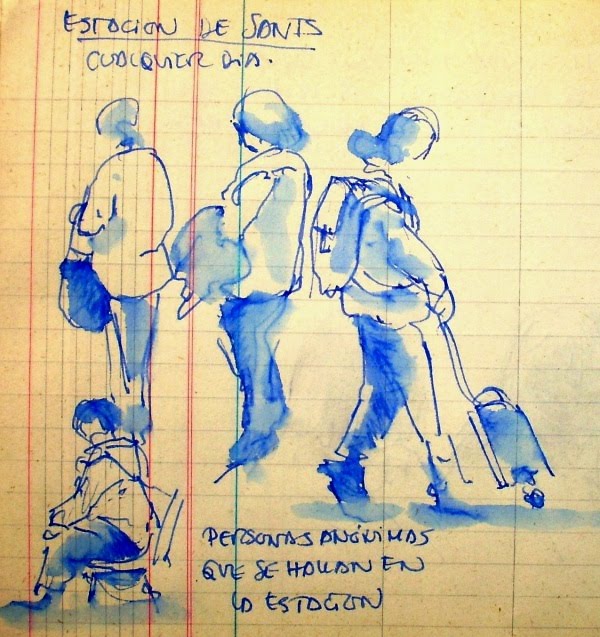 ESTACION DE SANTS
CUALQUIER DIA.
PERSONAS ANÓNIMAS
QUE SE HALLAN EN
LA ESTACION